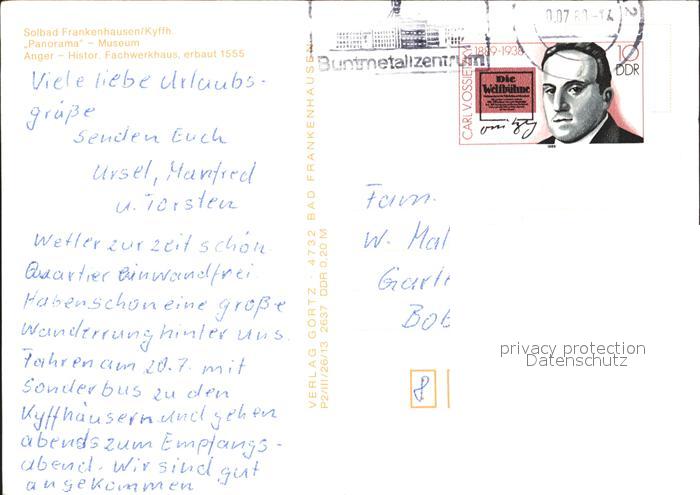 Solbad Frankenhausen/Kyffh.
„Panorama" – Museum
Anger – Histor. Fachwerkhaus, erbaut 1555
Viele liebe Urlaubs-
grüße
senden Euch
Ursel, Manfred
u. Torsten
Wetter zur Zeit schön.
Quartier einwandfrei.
Haben schon eine große
Wanderrung hinter uns.
Fahren am 20.7. mit
Sonderbus zu den
Kyffhäusern und gehen
abends zum Empfangs-
abend. Wir sind gut
angekommen
VERLAG GÖRTZ · 4732 BAD FRANKENHAUSEN
P2/III/26/13 2637 DDR 0,20 M
Buntmetallzentrum
CARL V. OSSIETZKY 1889-1938
10
DDR
Die
Weltbühne
1989
Fam.
W. Mal
Garte
Bob
8
privacy protection
Datenschutz